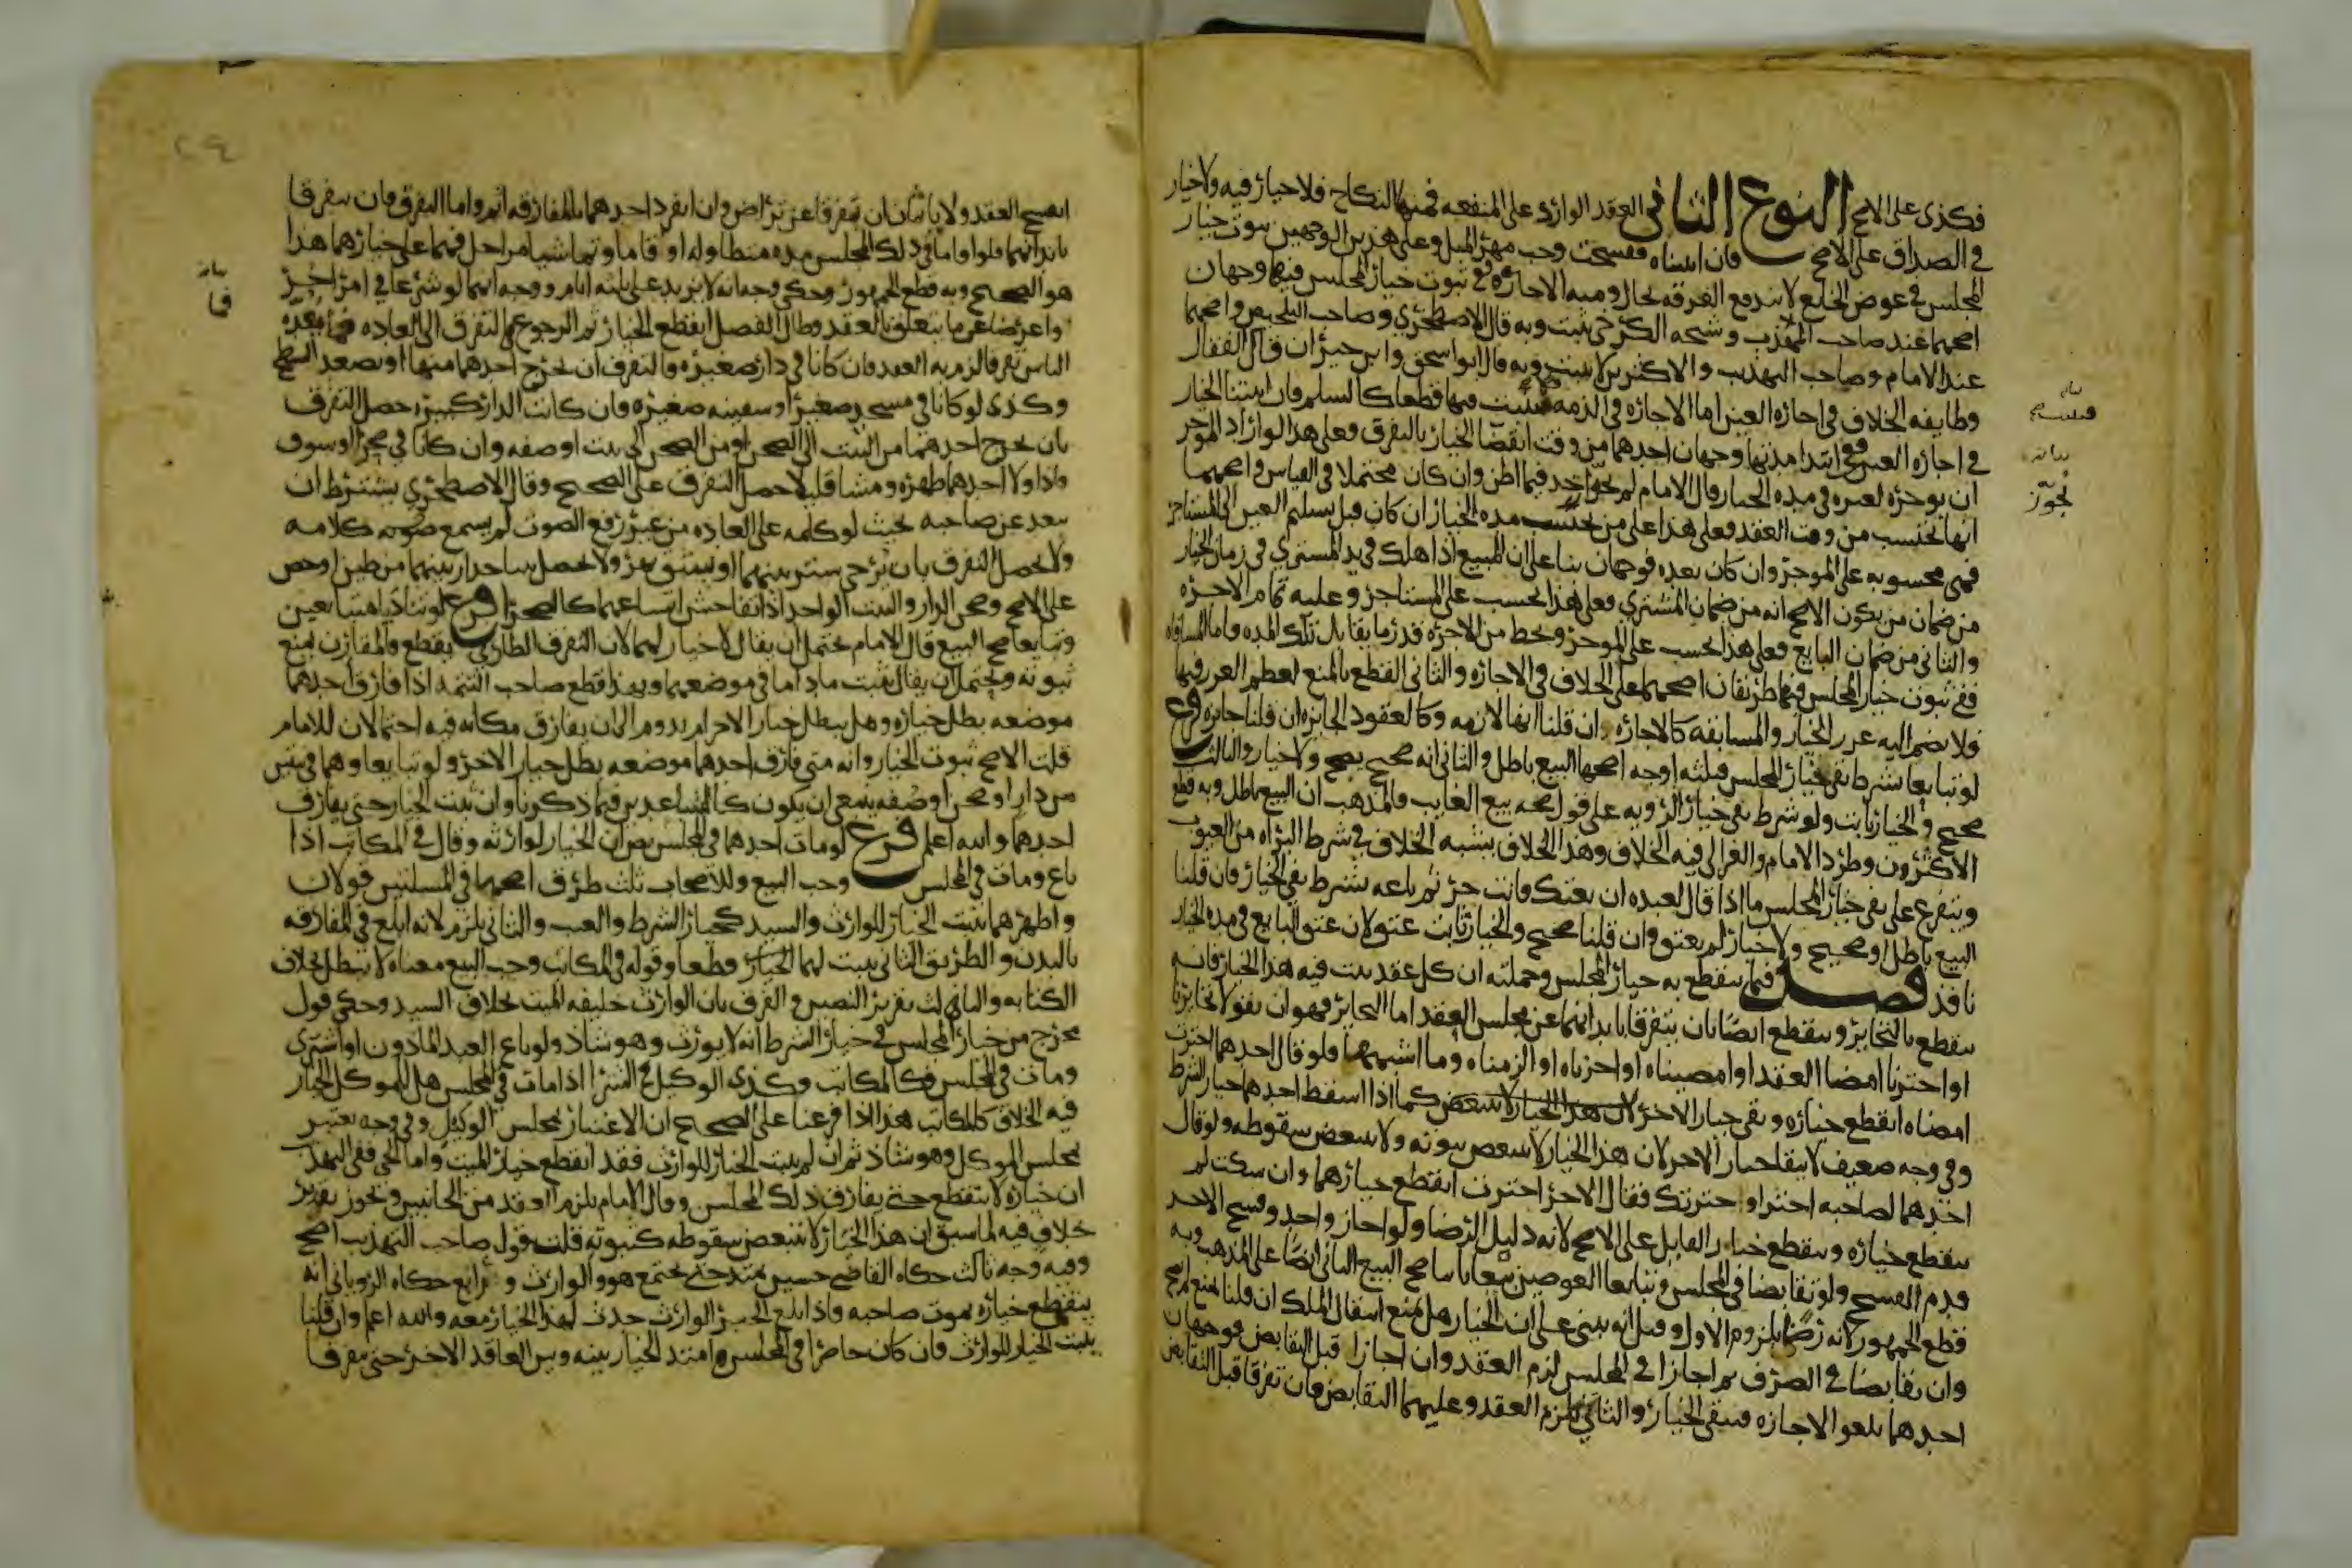 فكذى على الاصح النوع الثانى العقد الوارد على المنفعه فمنها النكاح فلا خيار فيه ولا خيار
في الصداق على الاصح فان اثبتناه ففسخت وجب مهر المثل وعلى هذين الوجهين ثبوت خيار
المجلس في عوض الخلع لا تندفع الفرقه بحال ومنه الاجاره ففي ثبوت خيار المجلس فيها وجهان
اصحهما عند صاحب المهذب وشيخه الكرخي يثبت وبه قال الاصطخري وصاحب التلخيص واصحهما
عند الامام وصاحب التهذيب والاكثرين لا يثبت وبه قال ابو اسحق وابن خيران قال القفال
وطايفه الخلاف في اجاره العين اما الاجاره في الذمه فيثبت فيها قطعا كالسلم فان اثبتنا الخيار
في اجاره العين ففي ابتدا مدتها وجهان احدهما من وقت انقضا الخيار بالتفرق وفعلى هذا لو اراد الموجر
ان يوجره لغيره في مده الخيار قال الامام لم يجوزه احد فيما اظن وان كان محتملا في القياس واصحهما
انها تحتسب من وقت العقد فعلى هذا على من تحتسب مده الخيار ان كان قبل تسليم العين الى المستاجر
فهي محسوبه على الموجر وان كان بعده فوجهان بنا على ان المبيع اذا هلك في يد المشتري في زمان الخيار
من ضمان من يكون الاصح انه من ضمان المشتري فعلى هذا تحسب على المستاجر وعليه تمام الاجره
والثاني من ضمان البايع فعلى هذا تحسب على الموجر ويحط من الاجره قدر ما يقابل تلك المده واما المساقاه
ففي ثبوت خيار المجلس فيها طريقان اصحهما على الخلاف في الاجاره والثاني القطع بالمنع لعظم الغرر فيها
فلا يضم اليه غرر الخيار والمسابقه كالاجاره ان قلنا انها لازمه وكالعقود الجايزه ان قلنا جايزه فرع
لو تبايعا بشرط نفي خيار المجلس فثلثه اوجه اصحها البيع باطل والثاني انه صحيح ولا خيار والثالث
صحيح والخيار ثابت ولو شرط نفي خيار الرويه على قول صحه بيع الغايب فالمذهب ان البيع باطل وبه قطع
الاكثرون وطرد الامام والغزالي فيه الخلاف وهذا الخلاف يشبه الخلاف في شرط البراه من العيوب
ويتفرع على نفي خيار المجلس ما اذا قال لعبده ان بعتك فانت حر ثم باعه بشرط نفي الخيار فان قلنا
البيع باطل او صحيح ولا خيار لم يعتق وان قلنا صحيح والخيار ثابت عتق لان عتق البايع في مده الخيار
نافذ فصل فيما ينقطع به خيار المجلس وجملته ان كل عقد يثبت فيه هذا الخيار فانه
ينقطع بالتخاير وينقطع ايضا بان يتفرقا بابدانهما عن مجلس العقد اما التخاير فهو ان يقولا تخايرنا
او اخترنا امضا العقد او امضيناه او اجزناه او الزمناه وما اشبهها فلو قال احدهما اخترت
امضاه انقطع خياره وبقي خيار الاخر كما اذا اسقط احدهما خيار الشرط
وفي وجه ضعيف لا يبقا خيار الاخر لان هذا الخيار لا يتبعض ثبوته ولا يتبعض سقوطه ولو قال
احدهما لصاحبه اختر او خيرتك فقال الاخر اخترت انقطع خيارهما وان سكت لم
ينقطع خياره وينقطع خيار القايل على الاصح لانه دليل الرضا ولو اجاز واحد وفسخ الاخر
قدم الفسخ ولو تقابضا في المجلس وتبايعا العوضين بيعا ثانيا صح البيع الثاني ايضا على المذهب وبه
قطع الجمهور لانه رضا بلزوم الاول وقيل انه يبنى على ان الخيار هل يمنع انتقال الملك ان قلنا يمنع لم يصح
وان تقابضا في الصرف ثم اجازا في المجلس لزم العقد وان اجازا قبل التقابض فوجهان
احدهما تلغو الاجازه فيبقى الخيار والثاني يلزم العقد وعليهما التقابض فان تفرقا قبل التقابض
بيانه
بيانه
يجوز
انفسخ العقد ولا ياثمان ان تفرقا عن تراض وان انفرد احدهما بالمفارقه اثم واما التفرق فان يتفرقا
بابدانهما فلو اقاما في ذلك المجلس مده متطاوله او قاما وتماشيا مراحل فهما على خيارهما هذا
هو الصحيح وبه قطع الجمهور وحكي وجه انه لا يزيد على ثلثه ايام ووجه انهما لو شرعا في امر اخر
واعرضا عن ما يتعلق بالعقد وطال الفصل انقطع الخيار ثم الرجوع في التفرق الى العاده فما يعده
الناس تفرقا لزم به العقد فان كانا في دار صغيره فالتفرق ان يخرج احدهما منها او يصعد السطح
وكذى لو كانا في مسجد صغير او سفينه صغيره فان كانت الدار كبيره حصل التفرق
بان يخرج احدهما من البيت الى الصحن او من الصحن الى بيت او صفه وان كانا في صحرا او سوق
فاذا ولا احدهما ظهره ومشا قليلا حصل التفرق على الصحيح وقال الاصطخري يشترط ان
يبعد عن صاحبه بحيث لو كلمه على العاده من غير رفع الصوت لم يسمع صوته كلامه
ولا يحصل التفرق بان يرخى ستر بينهما او يشق نهر ولا يحصل ببنا جدار بينهما من طين او جص
على الاصح وصحن الدار والبيت الواحد اذا تفاحش اتساعهما كالصحرا فرع لو تناديا متباعدين
وتبايعا صح البيع قال الامام يحتمل ان يقال لا خيار لهما لان التفرق الطاري يقطع فالمقارن يمنع
ثبوته ويحتمل ان يقال يثبت ما داما في موضعهما وبهذا قطع صاحب التتمه اذا فارق احدهما
موضعه بطل خياره وهل يبطل خيار الاخر ام يدوم الى ان يفارق مكانه فيه احتمالان للامام
قلت الاصح ثبوت الخيار وانه متى فارق احدهما موضعه بطل خيار الاخر ولو تبايعا وهما في بيتين
من دار او صحن وصفه ينبغي ان يكون كالمتباعدين فيما ذكرنا وان ثبت الخيار حتى يفارق
احدهما والله اعلم فرع لو مات احدهما في المجلس نص ان الخيار لوارثه وقال في المكاتب اذا
باع ومات في المجلس وجب البيع وللاصحاب ثلث طرق اصحها في المسلتين قولان
واظهرهما يثبت الخيار للوارث والسيد كخيار الشرط والعيب والثاني يلزم لانه ابلغ في المفارقه
بالبدن والطريق الثاني يثبت لهما الخيار قطعا وقوله في المكاتب وجب البيع معناه لا يبطل بخلاف
الكتابه والثالث تقرير النصين والفرق بان الوارث خليفه الميت بخلاف السيد وحكي قول
مخرج من خيار المجلس في خيار الشرط انه لا يورث وهو شاذ ولو باع العبد الماذون او اشترى
ومات في المجلس فكالمكاتب وكذى الوكيل في الشرا اذا مات في المجلس هل للموكل الخيار
فيه الخلاف كالمكاتب هذا اذا فرعنا على الصحيح ان الاعتبار بمجلس الوكيل وفي وجه يعتبر
بمجلس الموكل وهو شاذ ثم ان لم يثبت الخيار للوارث فقد انقطع خيار الميت واما الحي ففي التهذيب
ان خياره لا ينقطع حتى يفارق ذلك المجلس وقال الامام يلزم العقد من الجانبين ويجوز تقدير
خلاف فيه لما سبق ان هذا الخيار لا يتبعض سقوطه كثبوته قلت قول صاحب التهذيب اصح
وفيه وجه ثالث حكاه القاضي حسين يمتد حتى يجتمع هو والوارث ورابع حكاه الروياني انه
ينقطع خياره بموت صاحبه فاذا بلغ الخبر الوارث حدث لهذا الخيار معه والله اعلم وان قلنا
يثبت الخيار للوارث فان كان حاضرا في المجلس امتد الخيار بينه وبين العاقد الاخر حتى يتفرقا
بيانه